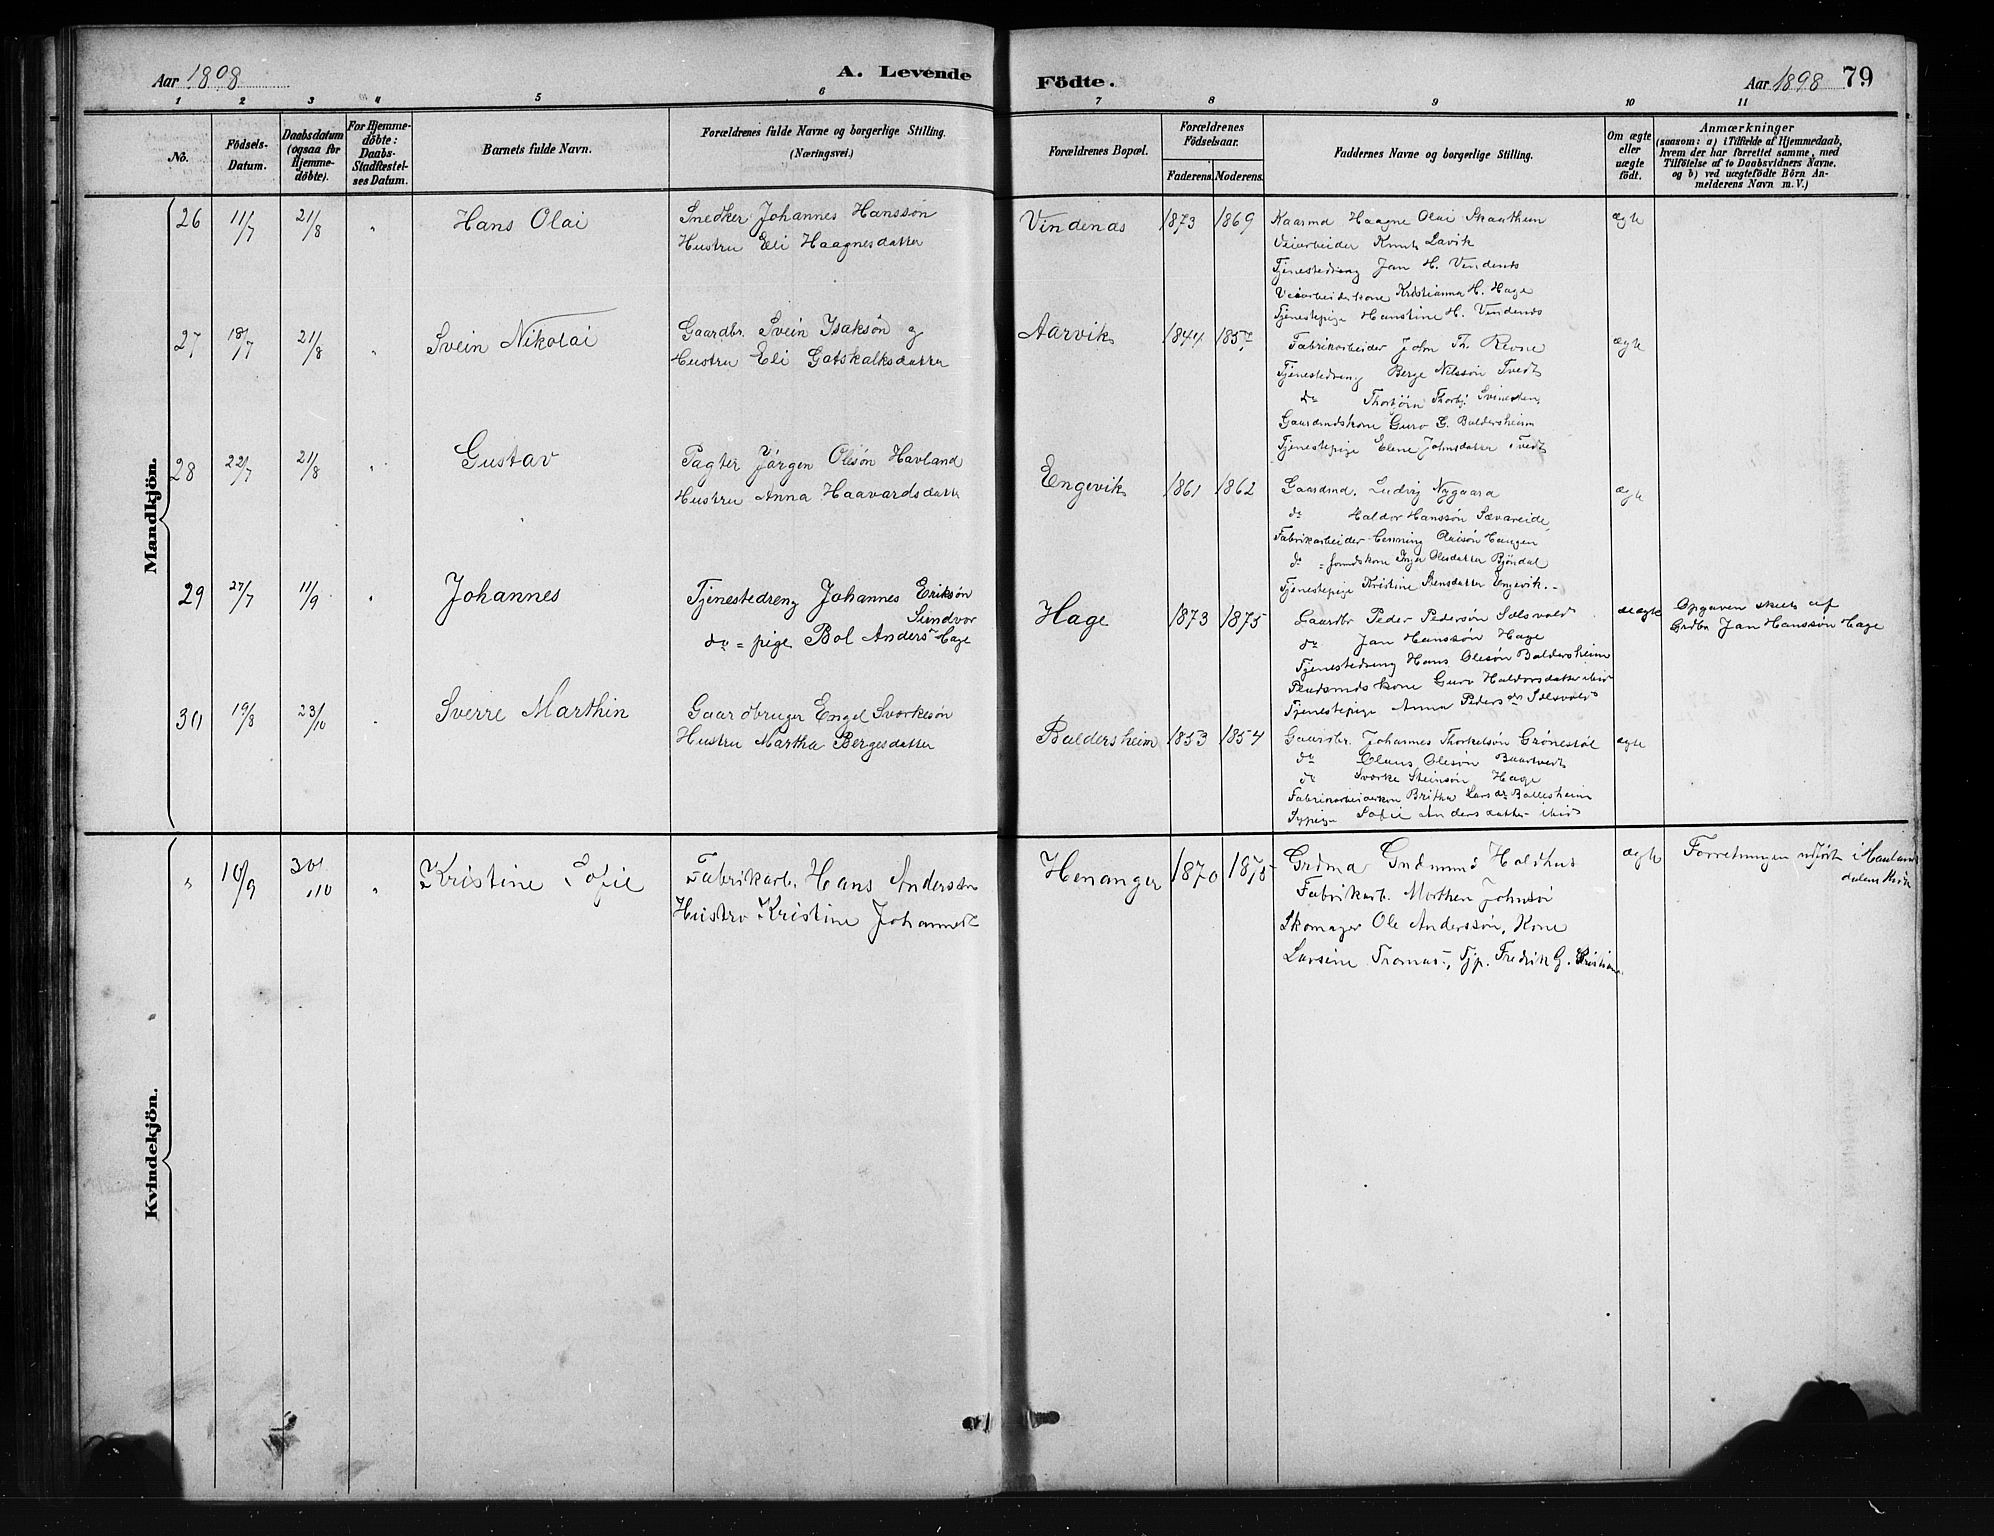 Aar 1898
A. Levende
Födte.
Aar 1898
79
1 2 3 4 5 6 7 8 9 10 11
No.
Födsels-Datum.
Daabsdatum (ogsaa for Hjemme-döbte).
For Hjemme-döbte: Daabs-Stadfæstel-ses Datum.
Barnets fulde Navn.
Forældrenes fulde Navne og borgerlige Stilling. (Næringsvei.)
Forældrenes Bopæl.
Forældrenes Födselsaar.
Faderens. Moderens.
Faddernes Navne og borgerlige Stilling.
Om ægte eller uægte födt.
Anmærkninger
(saasom: a) i Tilfælde af Hjemmedaab,
hvem der har forrettet samme, med
Tilföielse af to Daabsvidners Navne,
og b) ved uægtefödte Börn An-
melderens Navn m. V.)
Mandkjön.
26 11/7 21/8 " Hans Olai
Snedker Johannes Hanssøn
Hustru Eli Haagnesdatter
Vindenæs 1873 1869
Haagne Olai
Veiarbeider Knut Lavik
Tjenestedreng Jan H. Vindenes
Veiarbeiderkone Kristianna H. Hage
Tjenestepige Hanstine H. Vindenes
ægte
27 18/7 21/8 " Svein Nikolai
Gaardbr. Svein Isaksøn og
Hustru Eli Gotskalksdatter
Aarvik 1844
Fabrikarbeider John Th. Revne
Tjenestedreng Berge Nilssøn Tvedt
do Thorbjørn Thorbj.
Gaardmdskone Guro G. Baldersheim
Tjenestepige Elene Johnsdatter Tvedt
ægte
28 22/7 21/8 " Gustav
Pagter Jørgen Olesøn Havland
Hustru Anna Haavardsdatter
Engevik 1861 1862
Gaardmd. Ludvig Nygaard
do Haldor Hanssøn Sævareide
Fabrikarbeider Henning Olaisøn Haugen
do Inger Olesdatter Bjöndal
Tjenestepige Kristine Stensdatter Engevik.
ægte
29 27/7 11/9 " Johannes
Tjenestedreng Johannes Eriksøn
Sundvor
do = pige Bol Anders Hage
Hage 1873 1875
Gaardbr Peder Pedersøn Sælsvold
do Jan Hanssøn Hage
Tjenestedreng Hans Olesøn Baldersheim
Guro Haldorsdatter ibid
Tjenestepige Anna Pedersdr Sælsvold
uægte
Opgaven skeet af
Grdbr Jan Hanssøn Hage
30 19/8 23/10 " Sverre Marthin
Gaardbruger Engel Sværkesøn
Hustru Martha Bergesdatter
Baldersheim 1853 1854
Gaardbr. Johannes Thorkelsøn Grönestöl
do Olaus Olesøn
do Sværke Steinsøn Hage
Fabrikarbeiderkon Britha Larsdr
Sypige Sofie Andersdatter ibid
ægte
Kvindekjön.
" 10/9 30/10 " Kristine Sofie
Fabrikarb. Hans Andersøn
Hustro Kristine Johannesd
Henanger 1870 1875
Grdmd Gudmund Holdhus
Fabrikarb. Morthen Johnsø
Skomager Ole Anderssøn, Kone
Larsine Tjp. Fredrik G.
ægte
Forretningen udført i Hauland
dalens Kirk